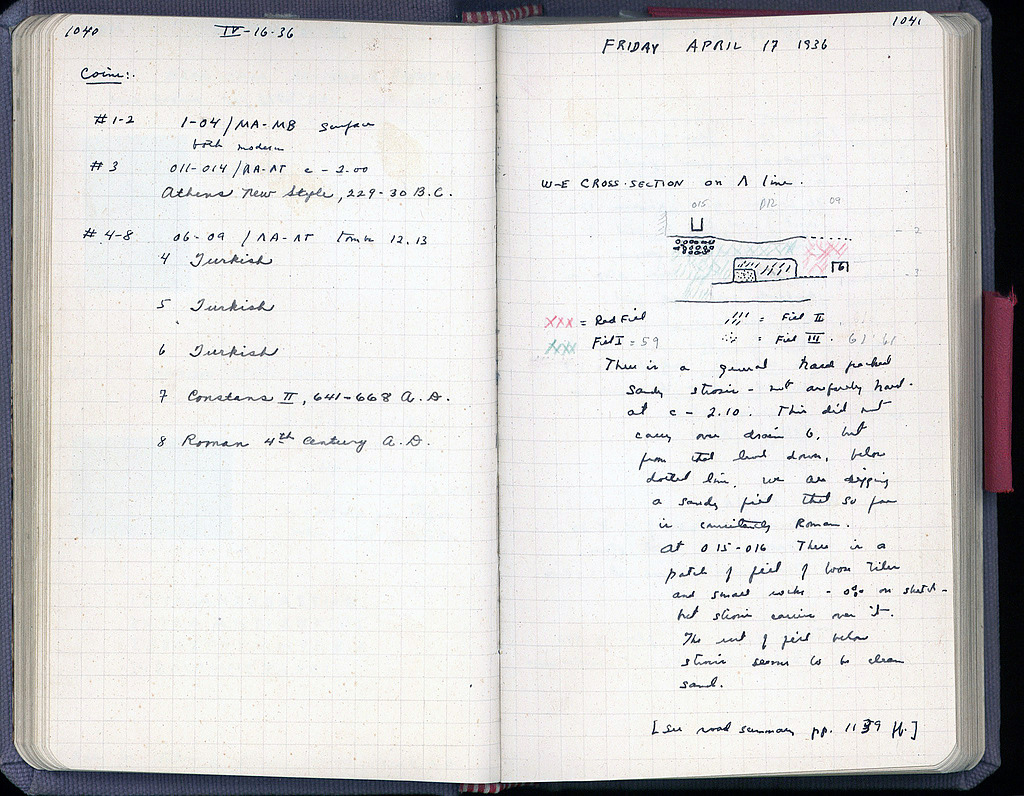 1040
IV-16-36
Coins:
#1-2 1-04/MA-MB surface
both modern
#3 011-014/ΛΑ-ΛΤ c - 2.00
Athens New Style, 229-30 B.C.
#4-8 06-09 /ΛΑ-ΛΤ 12, 13
4 Turkish
5 Turkish
6 Turkish
7 Constans II, 641-668 A.D.
8 Roman 4th Century A.D.
1041
FRIDAY APRIL 17 1936
W-E CROSS-SECTION on Λ line.
015 012 09
- 2
- 3
6
XXX = Road Fill
/// = Fill II
XXX Fill I = 59
= Fill III. 61
There is a general hard packed
sandy strosis - not hard.
at c - 2.10. This did not
carry over drain 6, but
from that level down, below
dotted line, we are digging
a sandy fill that so far
is consistently Roman.
at 015-016 There is a
patch of fill of loose tiles
and small rocks - on sketch -
but strosis carries over it.
The rest of fill below
strosis seems to be clean
sand.
[see road summary pp. 1139 ff.]